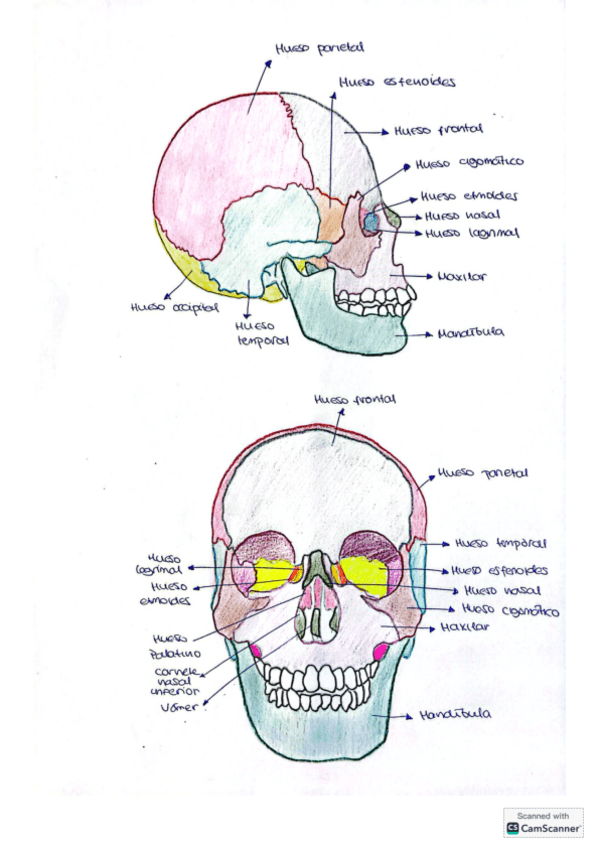 Hueso parietal
Hueso esfenoides
Hueso frontal
Hueso cigomático
Hueso etmoides
Hueso nasal
Hueso lagrimal
Maxilar
Hueso occipital
Hueso
temporal
Mandíbula
Hueso frontal
Hueso parietal
Hueso temporal
Hueso
lagrimal
Hueso esfenoides
Hueso
etmoides
Hueso nasal
Hueso cigomático
Maxilar
Hueso
Palatino
cornete
nasal
inferior
Vómer
Mandíbula
Scanned with
CS CamScanner